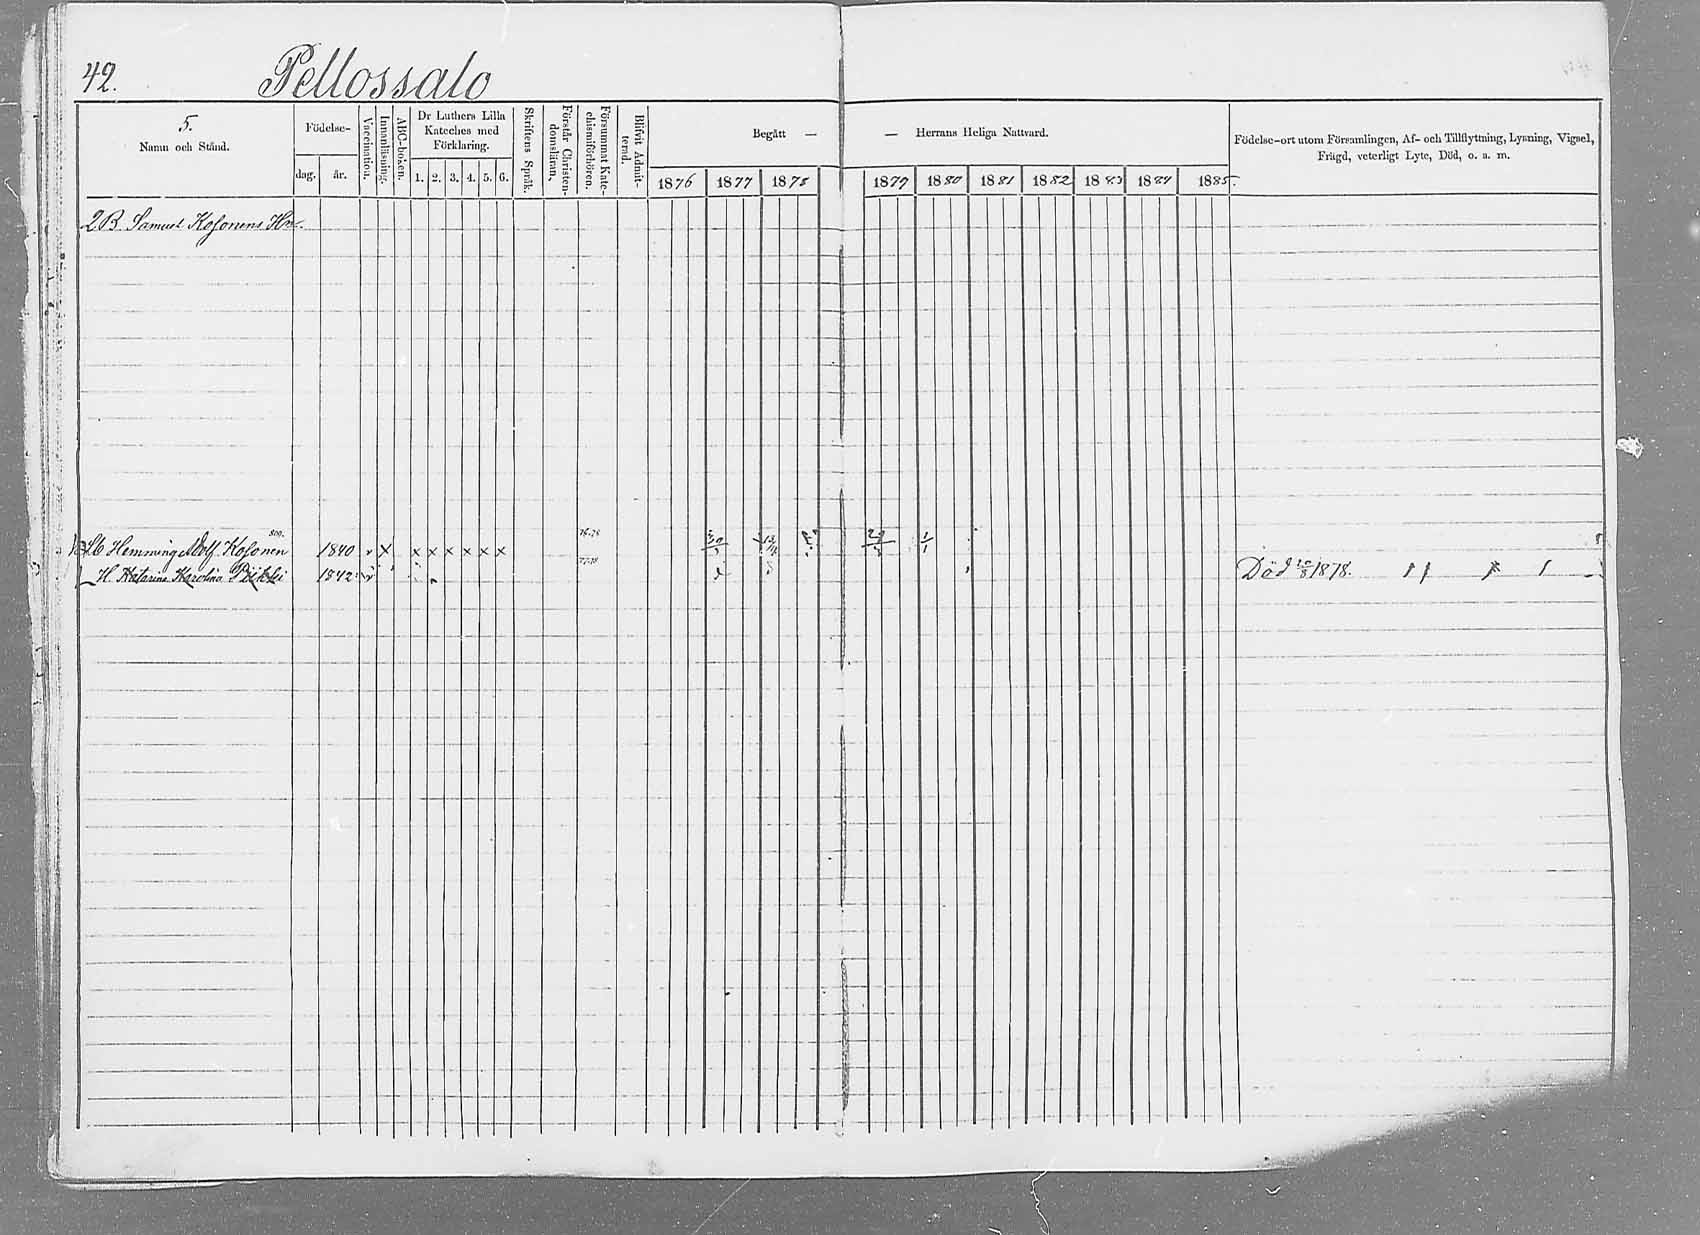 42. Pellossalo
5.
Namn och Stånd.
Födelse-
dag. år.
Vaccination.
Innanläsning.
ABC-boken.
Dr Luthers Lilla
Kateches med
Förklaring.
1. 2. 3. 4. 5. 6.
Skriftens Språk.
Förstår Christen-
domsläran.
Försummat Kate-
chismiförhören.
Blifvit Admit-
terad.
Begått —
— Herrans Heliga Nattvard.
1876 1877 1878 1879 1880 1881 1882 1883 1884 1885.
Födelse-ort utom Församlingen, Af- och Tillflyttning, Lysning, Vigsel,
Frägd, veterligt Lyte, Död, o. a. m.
2B. Samuel Kosonens
Hemming Adolf Kosonen 1840 x x x x x x x
H. Katarina Karolina Piikki 1842 Död 1878.